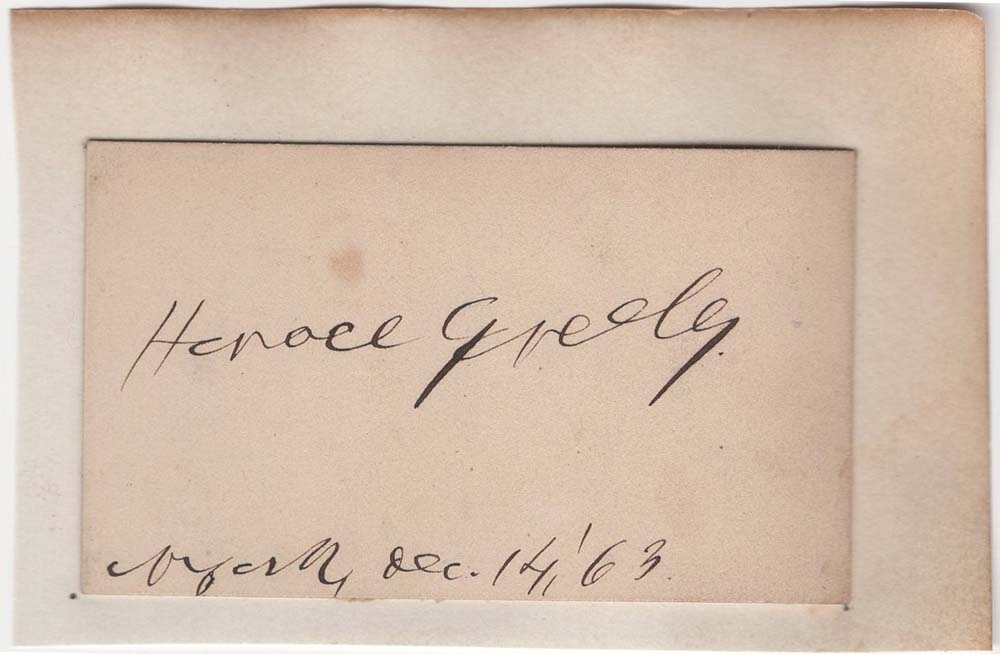 Horace Greeley.
N. York, Dec. 14, '63.